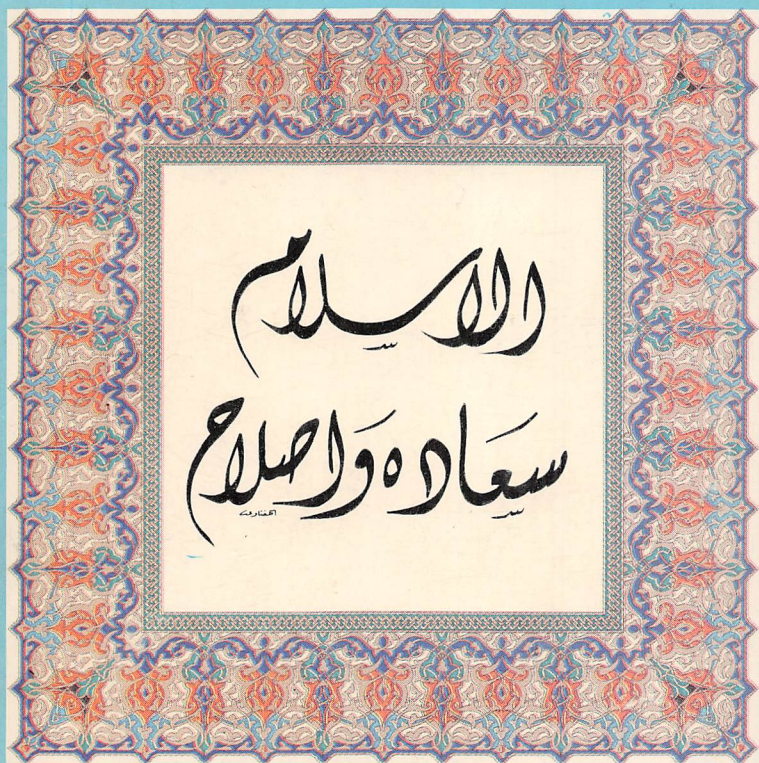 الاسلام
سعاده وَاصلاح